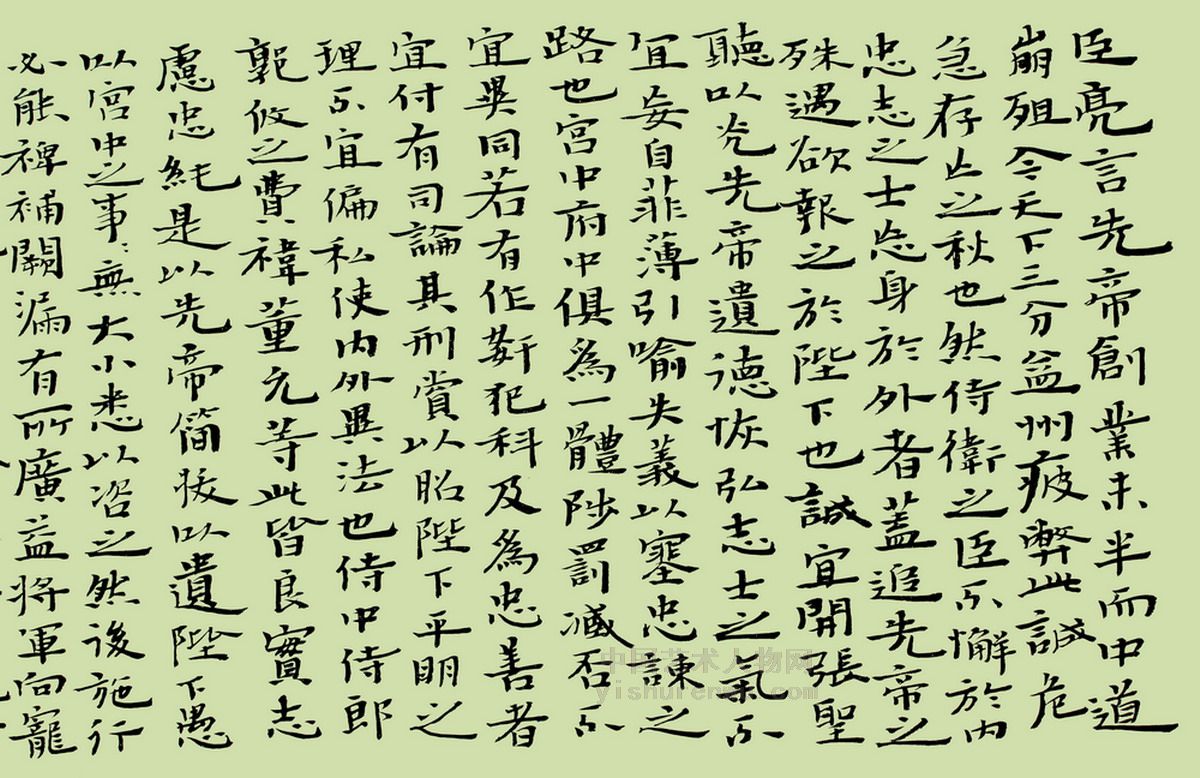 臣亮言先帝創業未半而中道
崩殂今天下三分益州疲弊此誠危
急存亡之秋也然侍衛之臣不懈於内
忠志之士忘身於外者蓋追先帝之
殊遇欲報之於陛下也誠宜開張聖
聽以光先帝遺德恢弘志士之氣不
宜妄自菲薄引喻失義以塞忠諫之
路也宮中府中俱爲一體陟罰臧否不
宜異同若有作奸犯科及爲忠善者
宜付有司論其刑賞以昭陛下平明之
理不宜偏私使内外異法也侍中侍郎
郭攸之費禕董允等此皆良實志
慮忠純是以先帝簡拔以遺陛下愚
以宮中之事〻無大小悉以咨之然後施行
必能裨補闕漏有所廣益將軍向寵
中国艺术人物网
yishurenwu.com